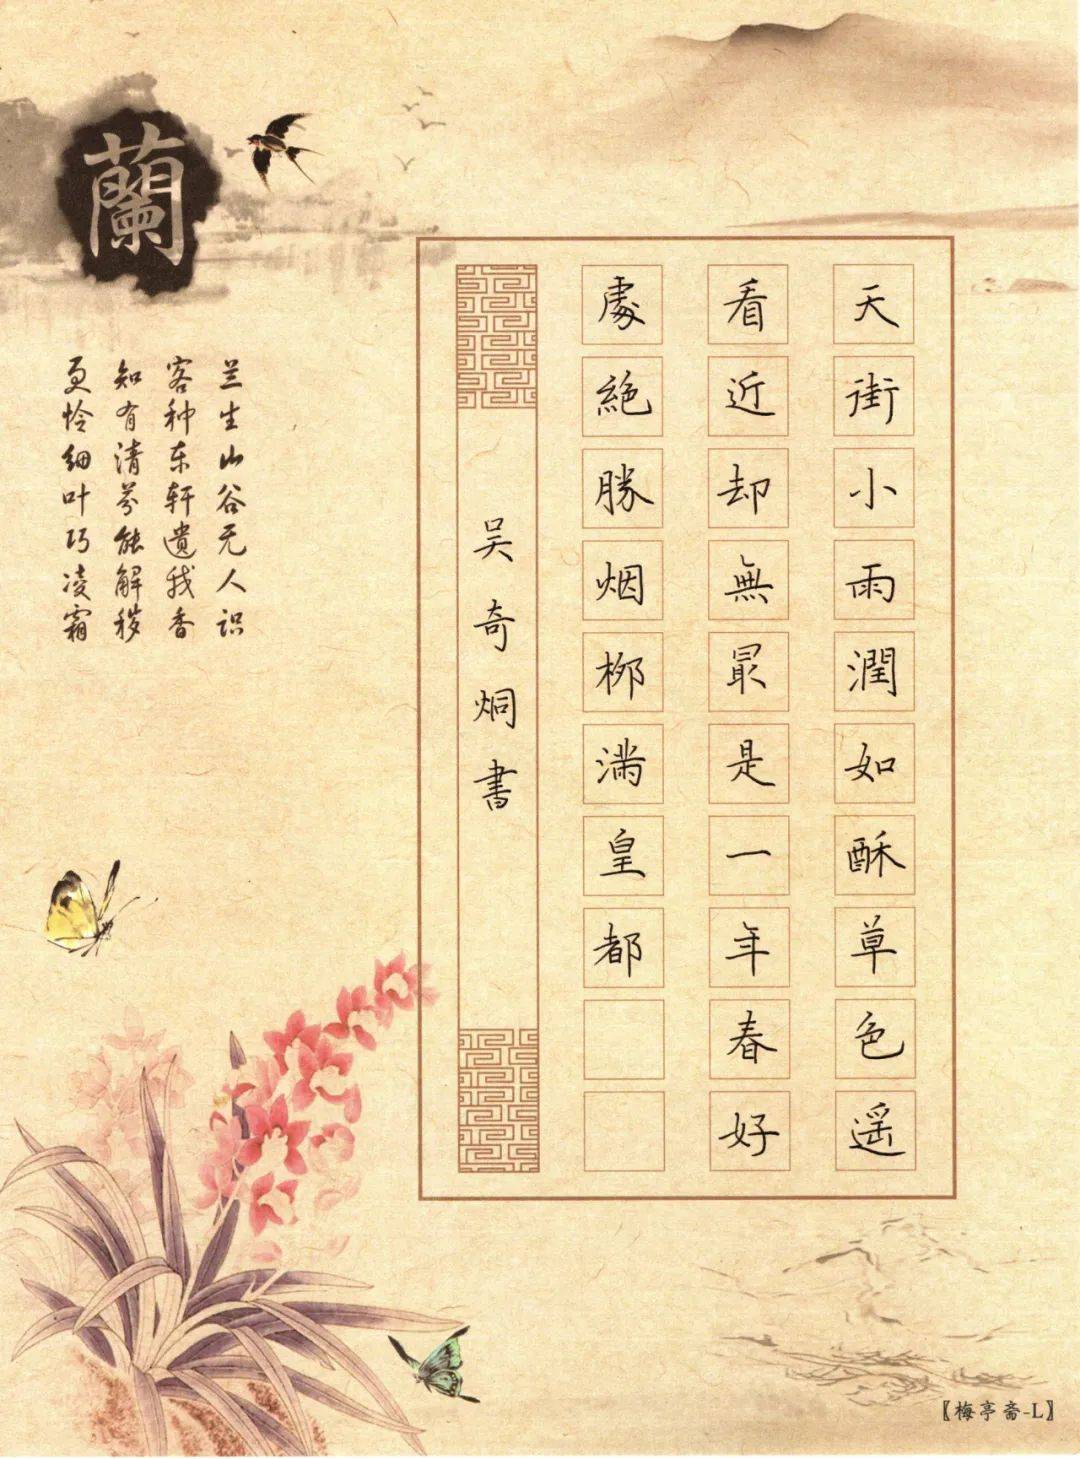 天街小雨潤如酥草色遥
看近却無最是一年春好
處絶勝烟柳滿皇都
吴奇烔書
蘭
兰生山谷无人识
客种东轩遗我香
知有清芬能解秽
更怜细叶巧凌霜
〖梅亭斋-L〗